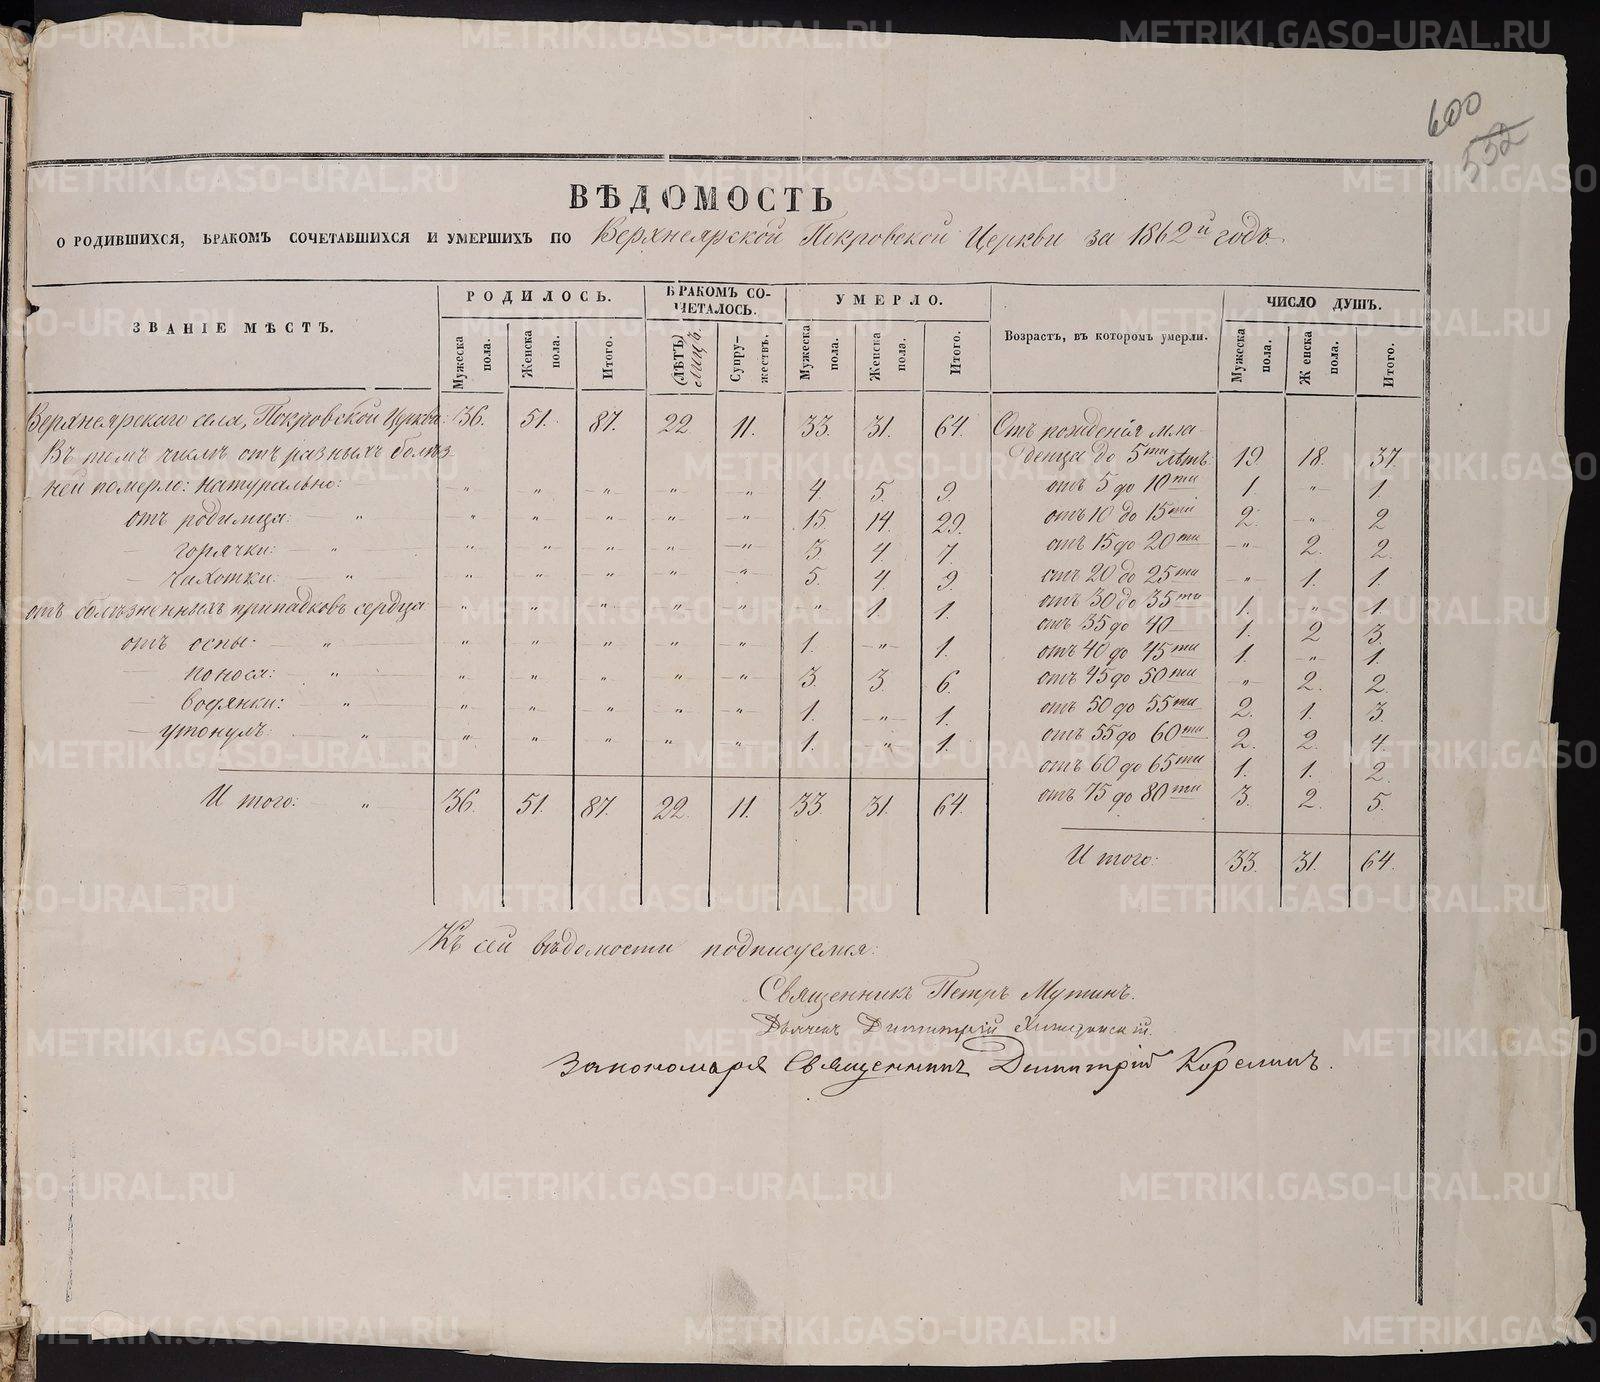 600
552
ВѢДОМОСТЬ
О РОДИВШИХСЯ, БРАКОМЪ СОЧЕТАВШИХСЯ И УМЕРШИХЪ ПО Верхнеярской Покровской Церкви за 1862й годъ.
ЗВАНІЕ МѢСТЪ. РОДИЛОСЬ. БРАКОМЪ СОЧЕТАЛОСЬ. УМЕРЛО. Возрастъ, въ которомъ умерли. ЧИСЛО ДУШЪ.
Мужеска пола. Женска пола. Итого. (ЛѢТЪ) Лицъ. Супружествъ. Мужеска пола. Женска пола. Итого. Мужеска пола. Женска пола. Итого.
Верхнеярскаго села, Покровской Церкви. 36. 51. 87. 22 11. 33. 31. 64. Отъ рожденія мла
Въ томъ числѣ отъ разныхъ болѣз денца до 5ти лѣтъ 19. 18. 37.
ней померло: натурально: " " " " " 4 5. 9. отъ 5 до 10ти 1. " 1
отъ родимца: " " " " " " 15 14. 29. отъ 10 до 15ти 2. " 2
горячки: " " " " " " 3. 4 7. отъ 15 до 20ти " 2. 2.
чахотки: " " " " " " 5. 4. 9. отъ 20 до 25ти " 1. 1.
отъ болѣзненныхъ припадковъ сердца " " " " " " 1. 1. отъ 30 до 35ти 1. " 1.
отъ 35 до 40 1. 2 3.
отъ оспы: " " " " " " 1. " 1. отъ 40 до 45ти 1. " 1.
поноса: " " " " " " 3. 3. 6. отъ 45 до 50ти " 2. 2.
водянки: " " " " " " 1. " 1. отъ 50 до 55ти 2. 1. 3.
утонулъ: " " " " " " 1. " 1. отъ 55 до 60ти 2. 2. 4.
отъ 60 до 65ти 1. 1. 2.
Итого: " 36. 51. 87. 22. 11. 33. 31. 64. отъ 75 до 80ти 3. 2. 5.
Итого: 33. 31. 64.
Къ сей вѣдомости подписуемся:
Священникъ Петръ Мутинъ.
Дьячекъ Димитрій
За пономаря Священникъ Димитрій Корелинъ.
METRIKI.GASO-URAL.RU